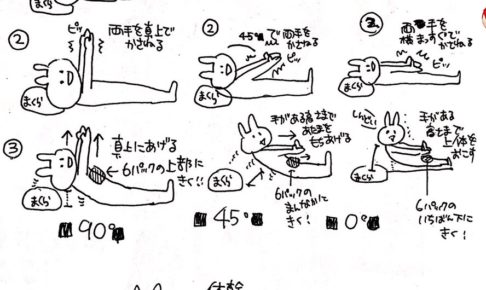 ②
ピッ
両手を真上で
かさねる
まくら
②
45°で
両手を
かさねる
ピッ
まくら
両手を
横まっすぐで
かさねる
ピッ
まくら
③
真上にあげる
6パックの上部に
きく!!
まくら
90°
手がある高さまで
あたまを
もちあげる
6パックの
まんなかに
きく!
まくら
45°
しんどい
手がある
高さまで
上体を
おこす
6パックの
いちばん下に
きく!
まくら
0°
体幹